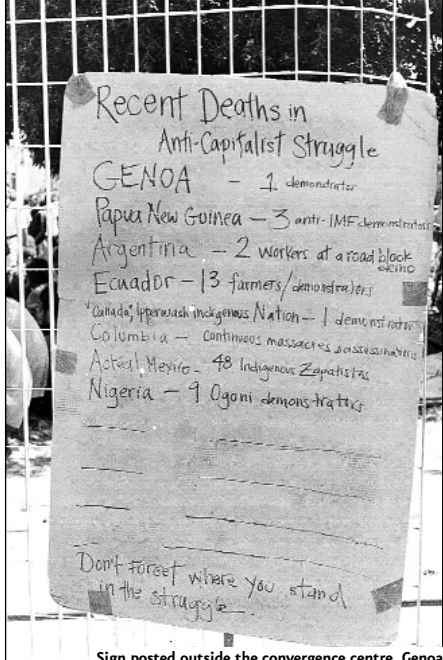 Recent Deaths in
Anti-Capitalist Struggle
GENOA - 1 demonstrator
Papua New Guinea - 3 anti-IMF demonstrators
Argentina - 2 workers at a road block
demo
Ecuador - 13 farmers/demonstrators
"Canada", Ipperwash indigenous Nation - 1 demonstrator
Columbia - continuous massacres & assassinations
Acteal, Mexico - 48 Indigenous Zapatistas
Nigeria - 9 Ogoni demonstrators
Don't forget where you stand
in the struggle.
Sign posted outside the convergence centre, Genoa